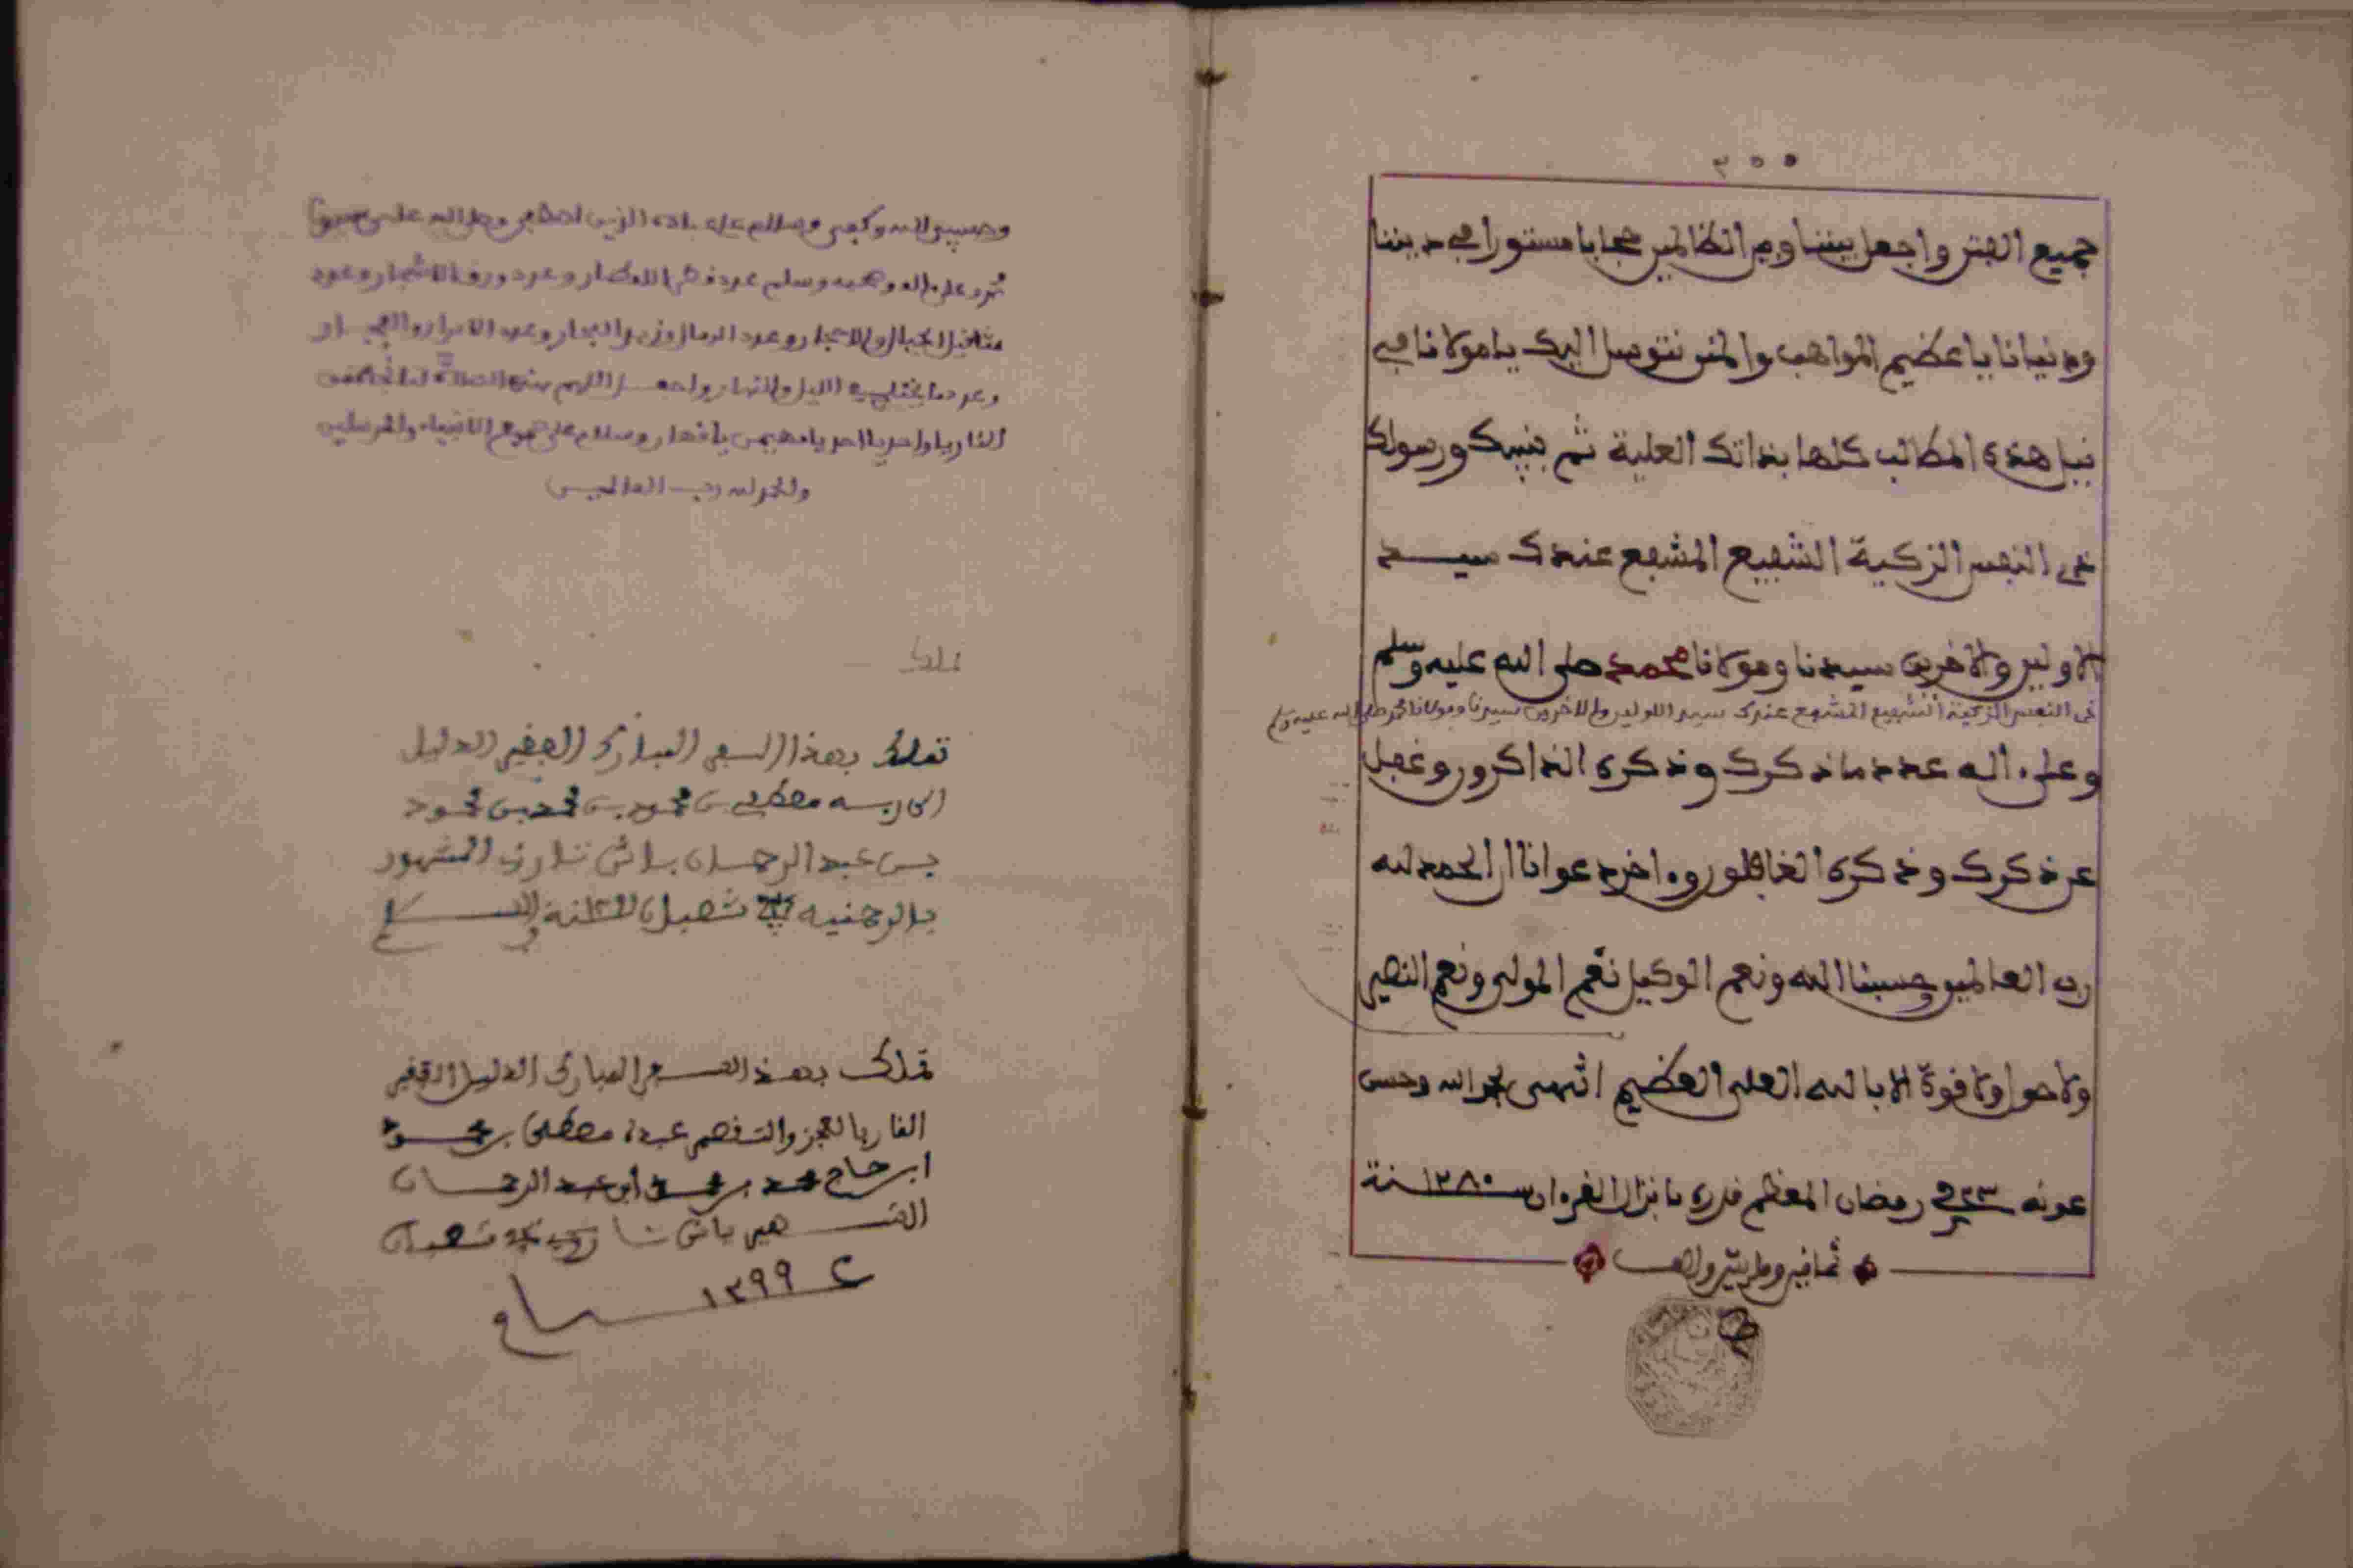 جميع الفتن واجعل بيننا وبين الظالمين حجابا مستورا في ديننا
ودنيانا يا عظيم المواهب والمنن نتوسل اليك يا مولانا في
نيل هذه المطالب كلها بذاتك العلية ثم بنبيك ورسولك
ذي النفس الزكية الشفيع المشفع عندك سيد
الاولين والاخرين سيدنا ومولانا محمد صلى الله عليه وسلم
ذي النفس الزكية الشفيع المشفع عندك سيد الاولين والاخرين سيدنا ومولانا محمد صلى الله عليه وسلم
وعلى اله عدد ما ذكرك وذكره الذاكرون وغفل
عن ذكرك وذكره الغافلون واخر دعوانا ان الحمد لله
رب العالمين وحسبنا الله ونعم الوكيل نعم المولى ونعم النصير
ولا حول ولا قوة الا بالله العلي العظيم انتهى بحمد الله وحسن
عونه في ٢٣ رمضان المعظم قدره بانزال القرءان سنة ١٢٨٠
ثمانين ومايتين والف
وحسبي الله وكفى وسلام على عباده الذين اصطفى وصلى الله على سيدنا
محمد وعلى اله وصحبه وسلم عدد قطر الامطار وعدد ورق الاشجار وعدد
مثاقيل الجبال والاحجار وعدد الرمال والبحار وعدد الابرار والفجار
وعدد ما يختلف عليه الليل والنهار واجعل اللهم هذه الصلاة لنا
النار يا واحد يا احد يا مهيمن يا قهار وسلام على جميع الانبياء والمرسلين
والحمد لله رب العالمين
تملك
تملك بهذا السفر المبارك الفقير الذليل
الى ربه مصطفى بن محمود بن محمد بن محمود
بن عبد الرحمان باش تارزي المشهور
بالرحمنية شعبان سنة والسلام
تملك بهذا السفر المبارك الذليل الفقير
القار بالعجز والتقصير عبده مصطفى بن محمود
ابن حاج محمد بن محمود ابن عبد الرحمان
الشهير باش تارزي شعبان
١٣٩٩